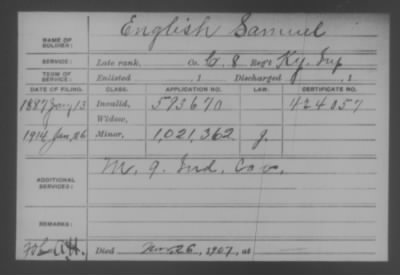 NAME OF SOLDIER: English Samuel
SERVICE: Late rank, Co. C. 8 Reg't Ky. Inf
TERM OF SERVICE: Enlisted , 1 Discharged , 1
DATE OF FILING. CLASS. APPLICATION NO. LAW. CERTIFICATE NO.
1887 Jany 13 Invalid, 593670 424057
Widow,
1914 Jan, 26 Minor, 1,021,362 g.
ADDITIONAL SERVICES: M. 9. Ind. Cav.
REMARKS:
Died Nov. 26, 1907, at